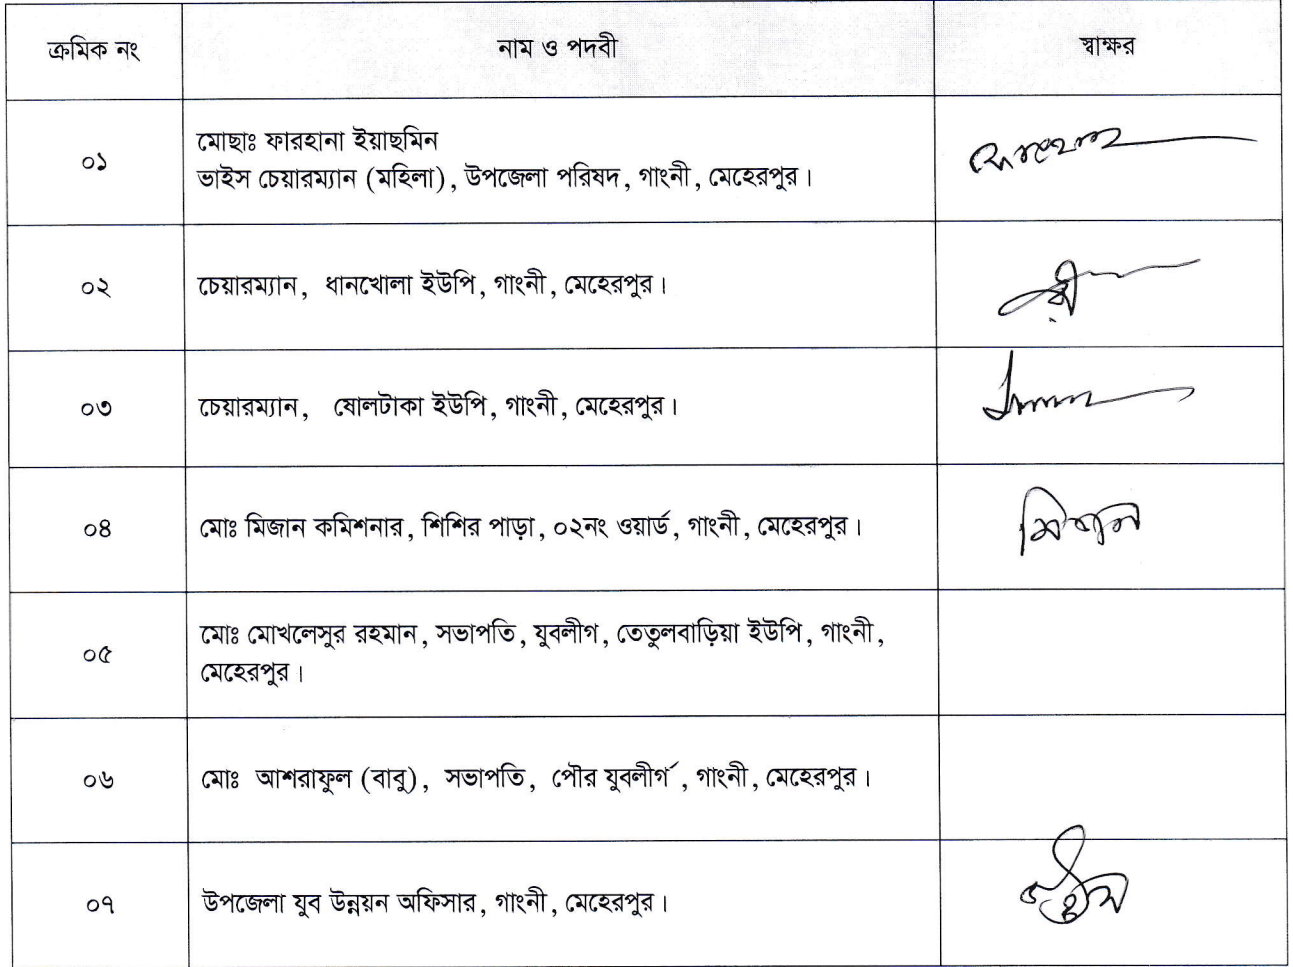 ক্রমিক নং নাম ও পদবী স্বাক্ষর
০১ মোছাঃ ফারহানা ইয়াছমিন
ভাইস চেয়ারম্যান (মহিলা), উপজেলা পরিষদ, গাংনী, মেহেরপুর।
০২ চেয়ারম্যান, ধানখোলা ইউপি, গাংনী, মেহেরপুর।
০৩ চেয়ারম্যান, ষোলটাকা ইউপি, গাংনী, মেহেরপুর।
০৪ মোঃ মিজান কমিশনার, শিশির পাড়া, ০২নং ওয়ার্ড, গাংনী, মেহেরপুর। মিজান
০৫ মোঃ মোখলেসুর রহমান, সভাপতি, যুবলীগ, তেতুলবাড়িয়া ইউপি, গাংনী,
মেহেরপুর।
০৬ মোঃ আশরাফুল (বাবু), সভাপতি, পৌর যুবলীগ, গাংনী, মেহেরপুর।
০৭ উপজেলা যুব উন্নয়ন অফিসার, গাংনী, মেহেরপুর।